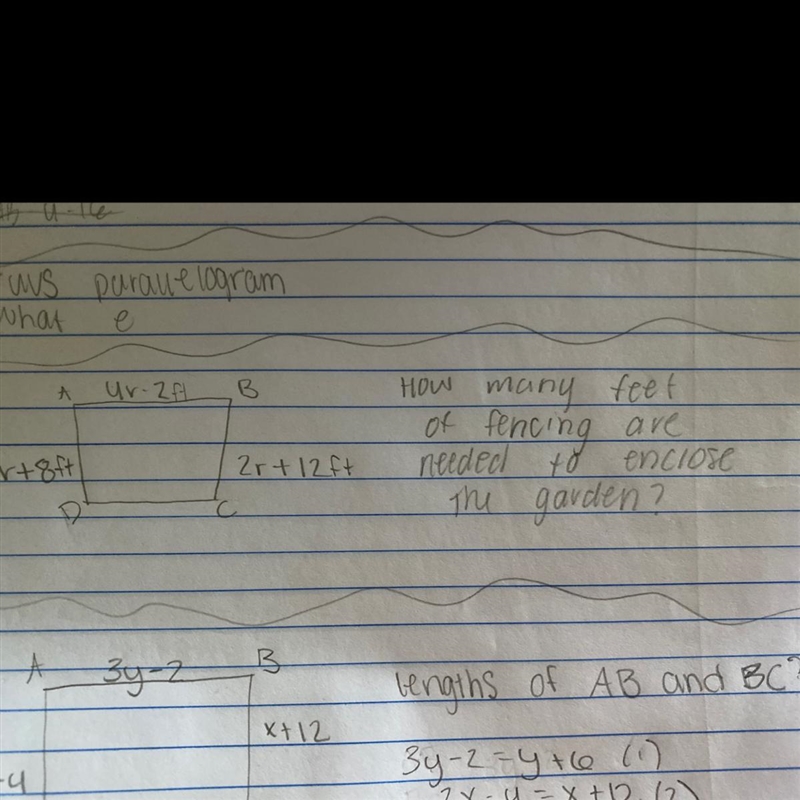 parallelogram
What e
A 4r-2ft B
r+8ft
2r+12ft
D C
How many feet
of fencing are
needed to enclose
the garden?
A 3y-2 B
x+12
-4
lengths of AB and BC?
3y-2=y+6 (1)
2x-4=x+12 (2)